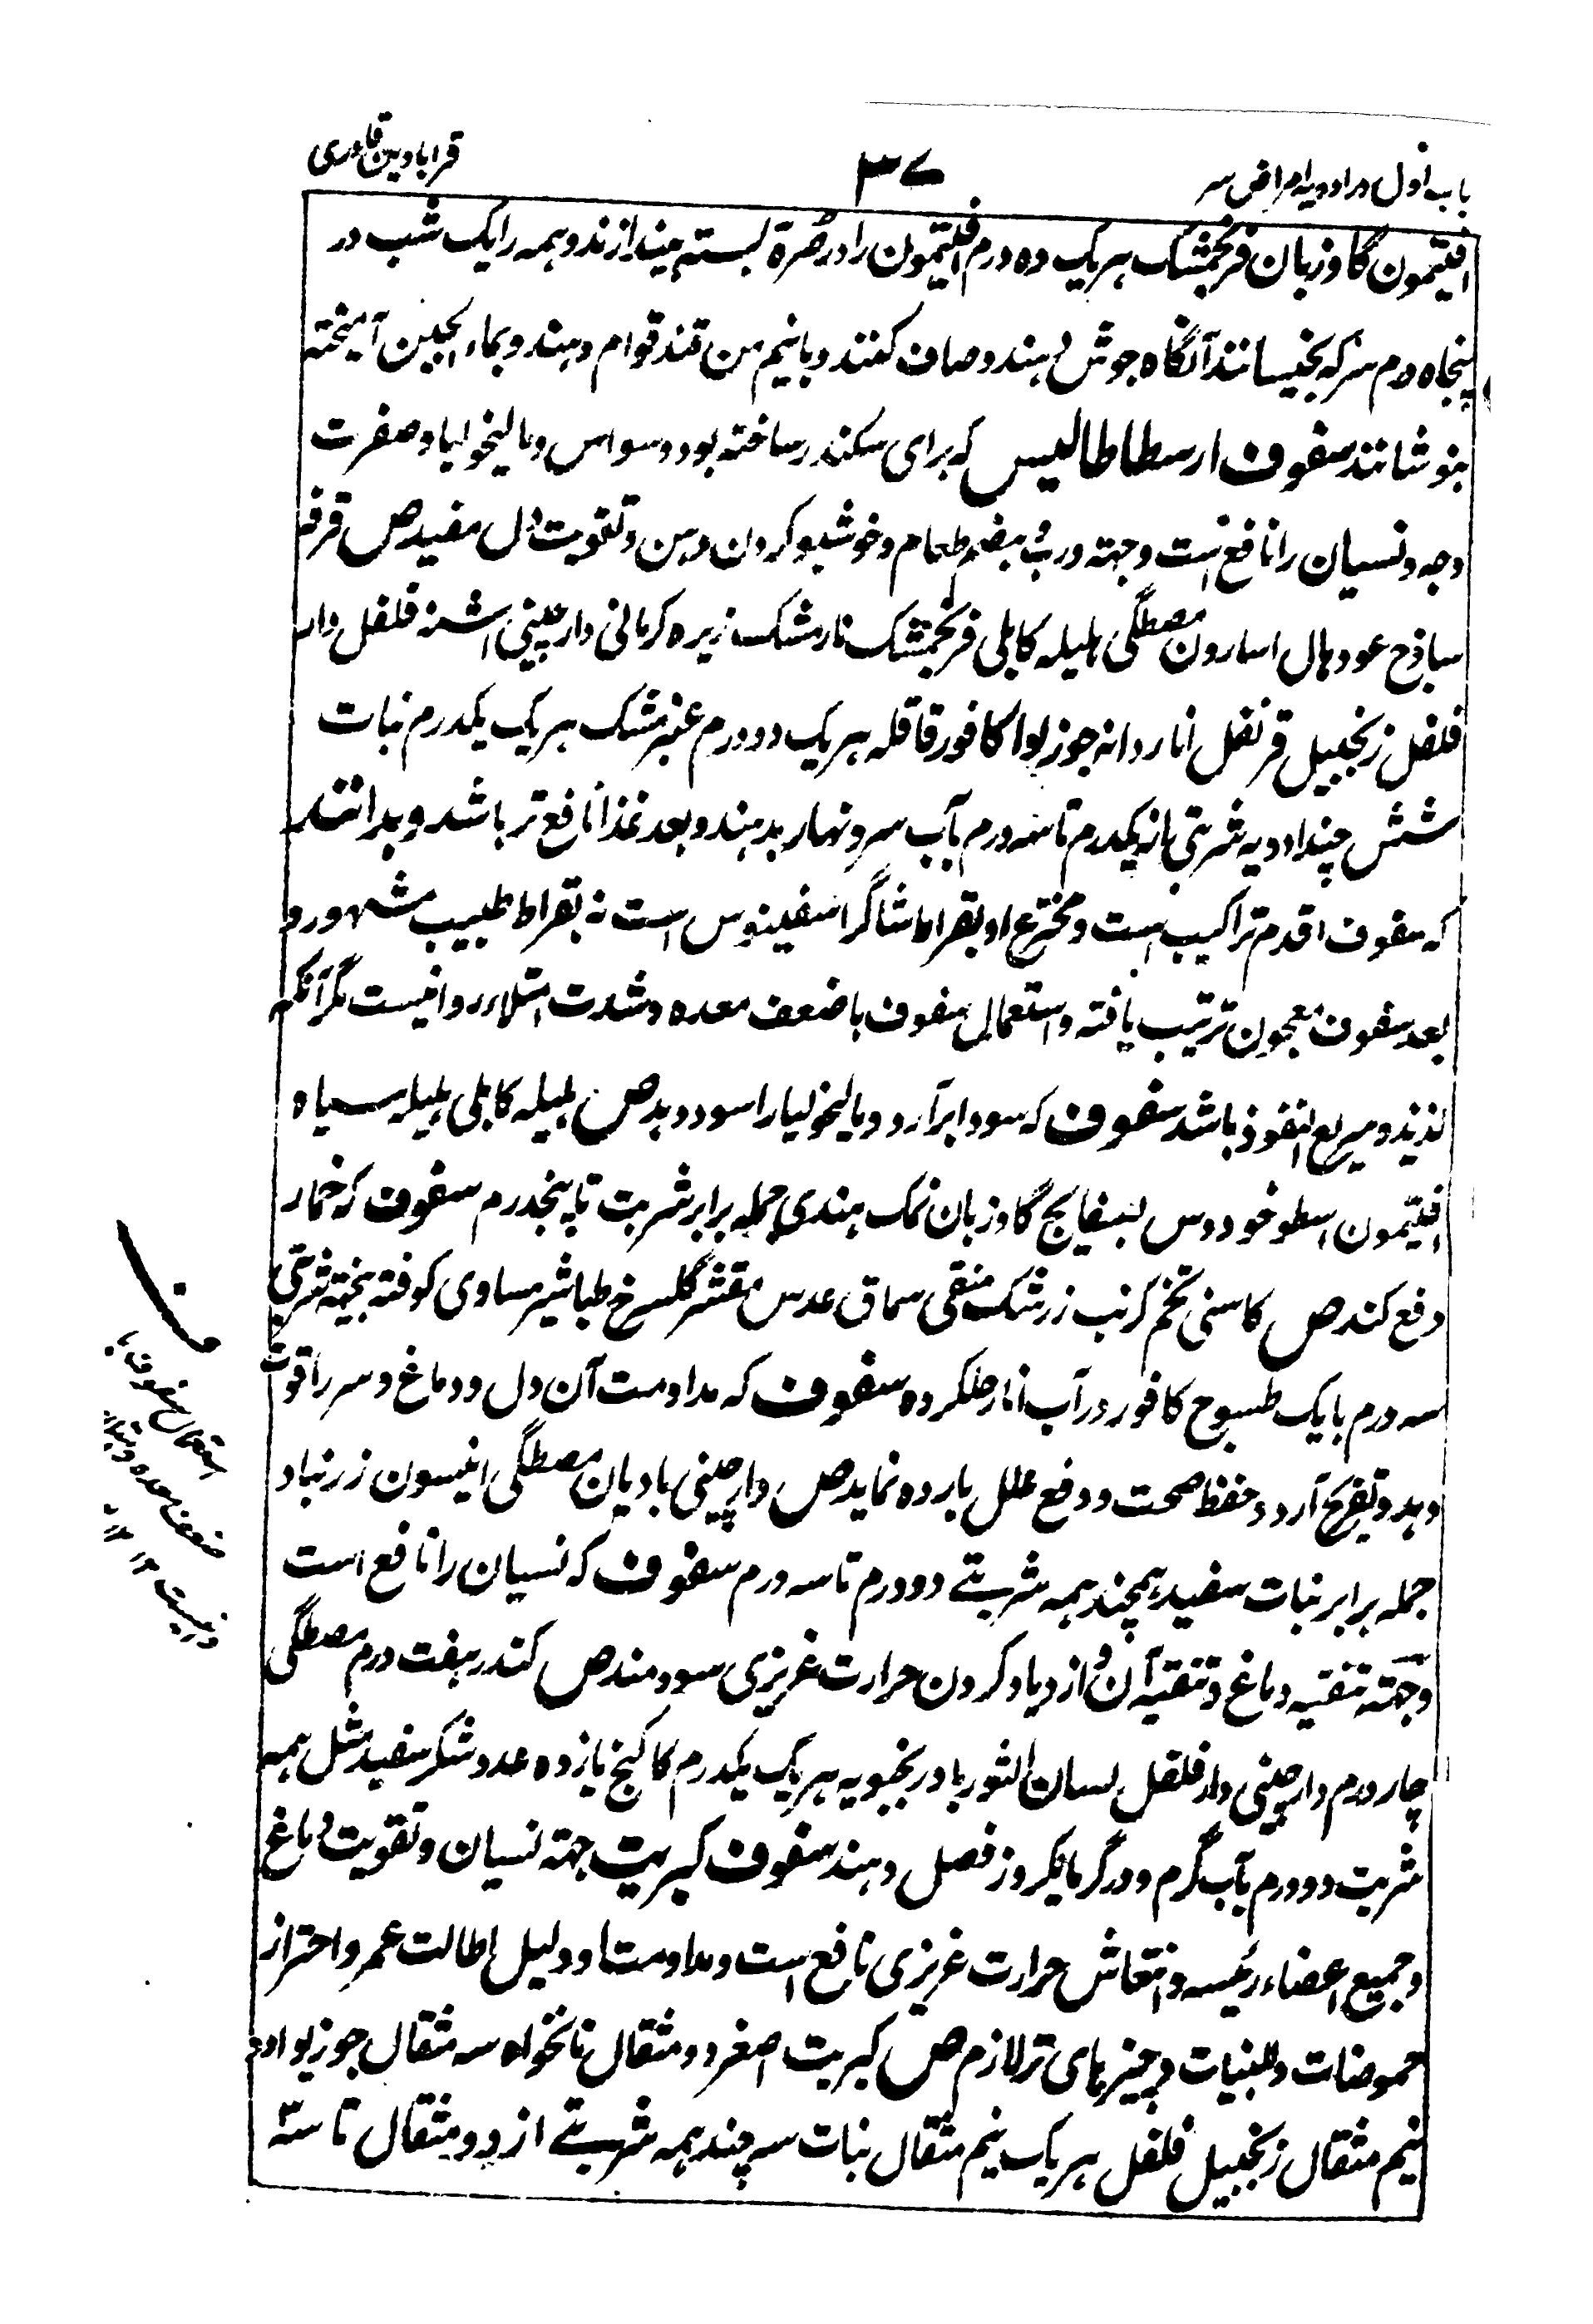 باب اول در ادویه امراض سر
۳۷
قرابادین قادری
افتیمون گاوزبان فرنجمشک هریک ده درم افتیمون را در صره بسته میندازند و همه را یک شب در
پنجاه درم سرکه بخیسانند آنگاه جوش دهند و صاف کنند و با نیم من قند قوام دهند و بماء الجبن آمیخته
بنوشانند سفوف ارسطاطالیس که برای سکندر ساخته بود وسواس و مالیخولیا و صفرت
وجه و نسیان را نافع است و جهته هضم طعام و خوشبو کردن دهن و تقویت دل مفید ص قرفه
ساذج عود هال اسارون مصطگی هلیله کابلی فرنجمشک نارمشک زیره کرمانی دارچینی اشنه فلفل دار
فلفل زنجبیل قرنفل اناردانه جوزبوا کافور قاقله هریک دو درم عنبر مشک هریک یکدرم نبات
شش چند ادویه شربتی از یکدرم تا سه درم بآب سرد نهار بدهند و بعد غذا نافع تر باشد و بدانند
که سفوف اقدم تراکیب است و مخترع او بقراط شاگرد اسفلینوس است نه بقراط طبیب مشهور و
بعد سفوف معجون ترتیب یافته و استعمال سفوف با ضعف معده و شدت امتلاء روا نیست مگر آنکه
لذیذ و سریع النفوذ باشد سفوف که سودا برآرد و مالیخولیا را سود دهد ص هلیله کابلی هلیله سیاه
افتیمون اسطوخودوس بسفایج گاوزبان نمک هندی جمله برابر شربت تا پنجدرم سفوف که خمار
دفع کند ص کاسنی تخم کرنب زرشک منقی سماق عدس مقشر گلسرخ طباشیر مساوی کوفته بیخته شربتی
سه درم با یک طسوج کافور در آب انار حلکرده سفوف که مداومت آن دل و دماغ و سر را قوت
دهد و تفریح آرد و حفظ صحت و دفع علل بارده نماید ص دارچینی بادیان مصطگی انیسون زرنباد
جمله برابر نبات سفید همچند همه شربتے دو درم تا سه درم سفوف که نسیان را نافع است
و جهته تنقیه دماغ و تنقیه آن و ازدیاد کردن حرارت غریزی سودمند ص کندر هفت درم مصطگی
چار درم دارچینی دارفلفل لسان الثور بادرنجبویه هریک یکدرم کاکنج یازده عدد شکر سفید مثل همه
شربت دو درم بآب گرم و در گرما یکروز فصل دهند سفوف کبریت جهته نسیان و تقویت دماغ
و جمیع اعضاء رئیسه و انتعاش حرارت غریزی نافع است و مداومت او دلیل اطالت عمر و احتراز
حموضات و لبنیات و چیزهای تر لازم ص کبریت اصفر دو مثقال نانخواه سه مثقال جوزبوا دو
نیم مثقال زنجبیل فلفل هریک نیم مثقال نبات سه چند همه شربتے از دو مثقال تا سه
استعمال سفوف با
ضعف معده و
نیست ۱۲